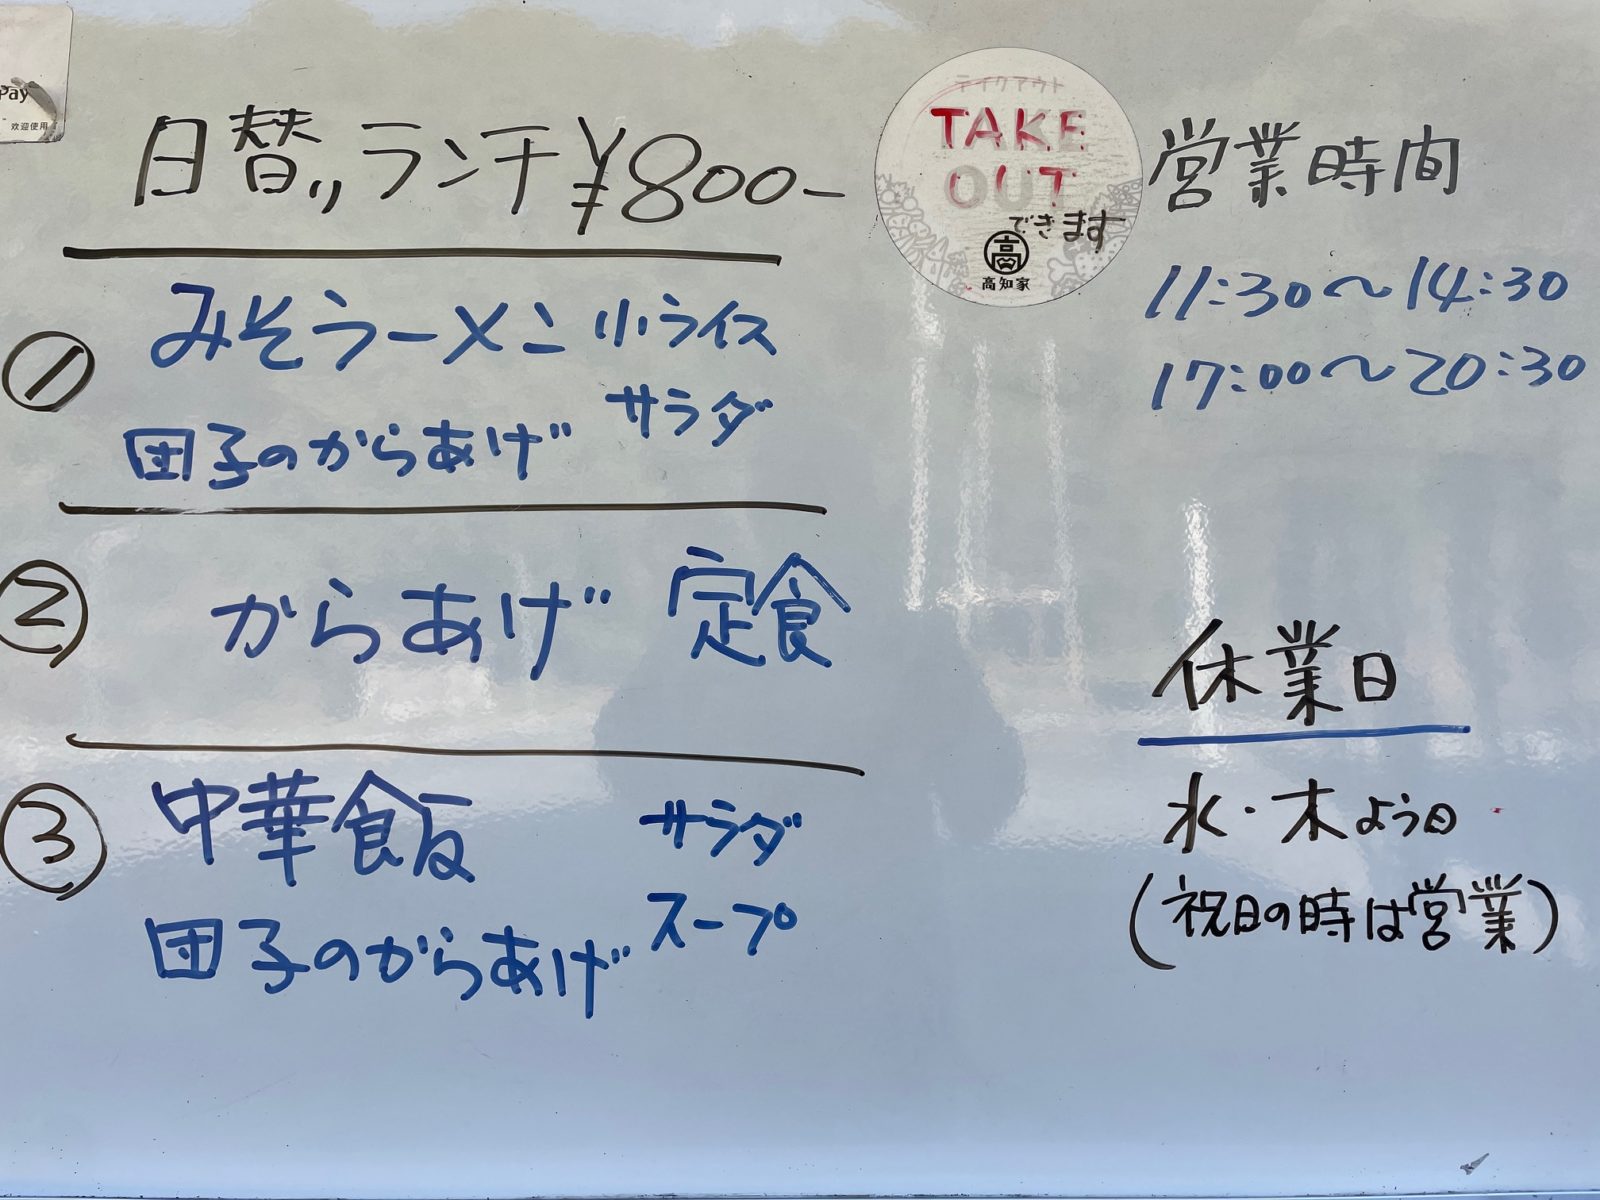 Pay
欢迎使用
日替りランチ ¥800-
① みそラーメン 小ライス
サラダ
団子のからあげ
② からあげ 定食
③ 中華飯 サラダ
スープ
団子のからあげ
テイクアウト
TAKE
OUT
できます
高
高知家
営業時間
11:30〜14:30
17:00〜20:30
休業日
水・木よう日
(祝日の時は営業)